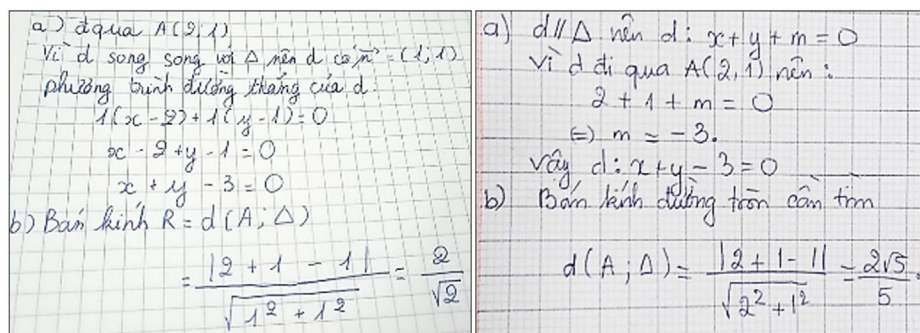 a) d qua A(2;1)
Vì d song song với Δ nên d có n⃗ = (1;1)
phương trình đường thẳng của d:
1(x - 2) + 1(y - 1) = 0
x - 2 + y - 1 = 0
x + y - 3 = 0
b) Bán kính R = d(A; Δ)
= |2 + 1 - 1| / √(1² + 1²) = 2/√2
a) d // Δ nên d: x + y + m = 0
Vì d đi qua A(2,1) nên:
2 + 1 + m = 0
⇔ m = -3.
Vậy d: x + y - 3 = 0
b) Bán kính đường tròn cần tìm
d(A; Δ) = |2 + 1 - 1| / √(2² + 1²) = 2√5/5.